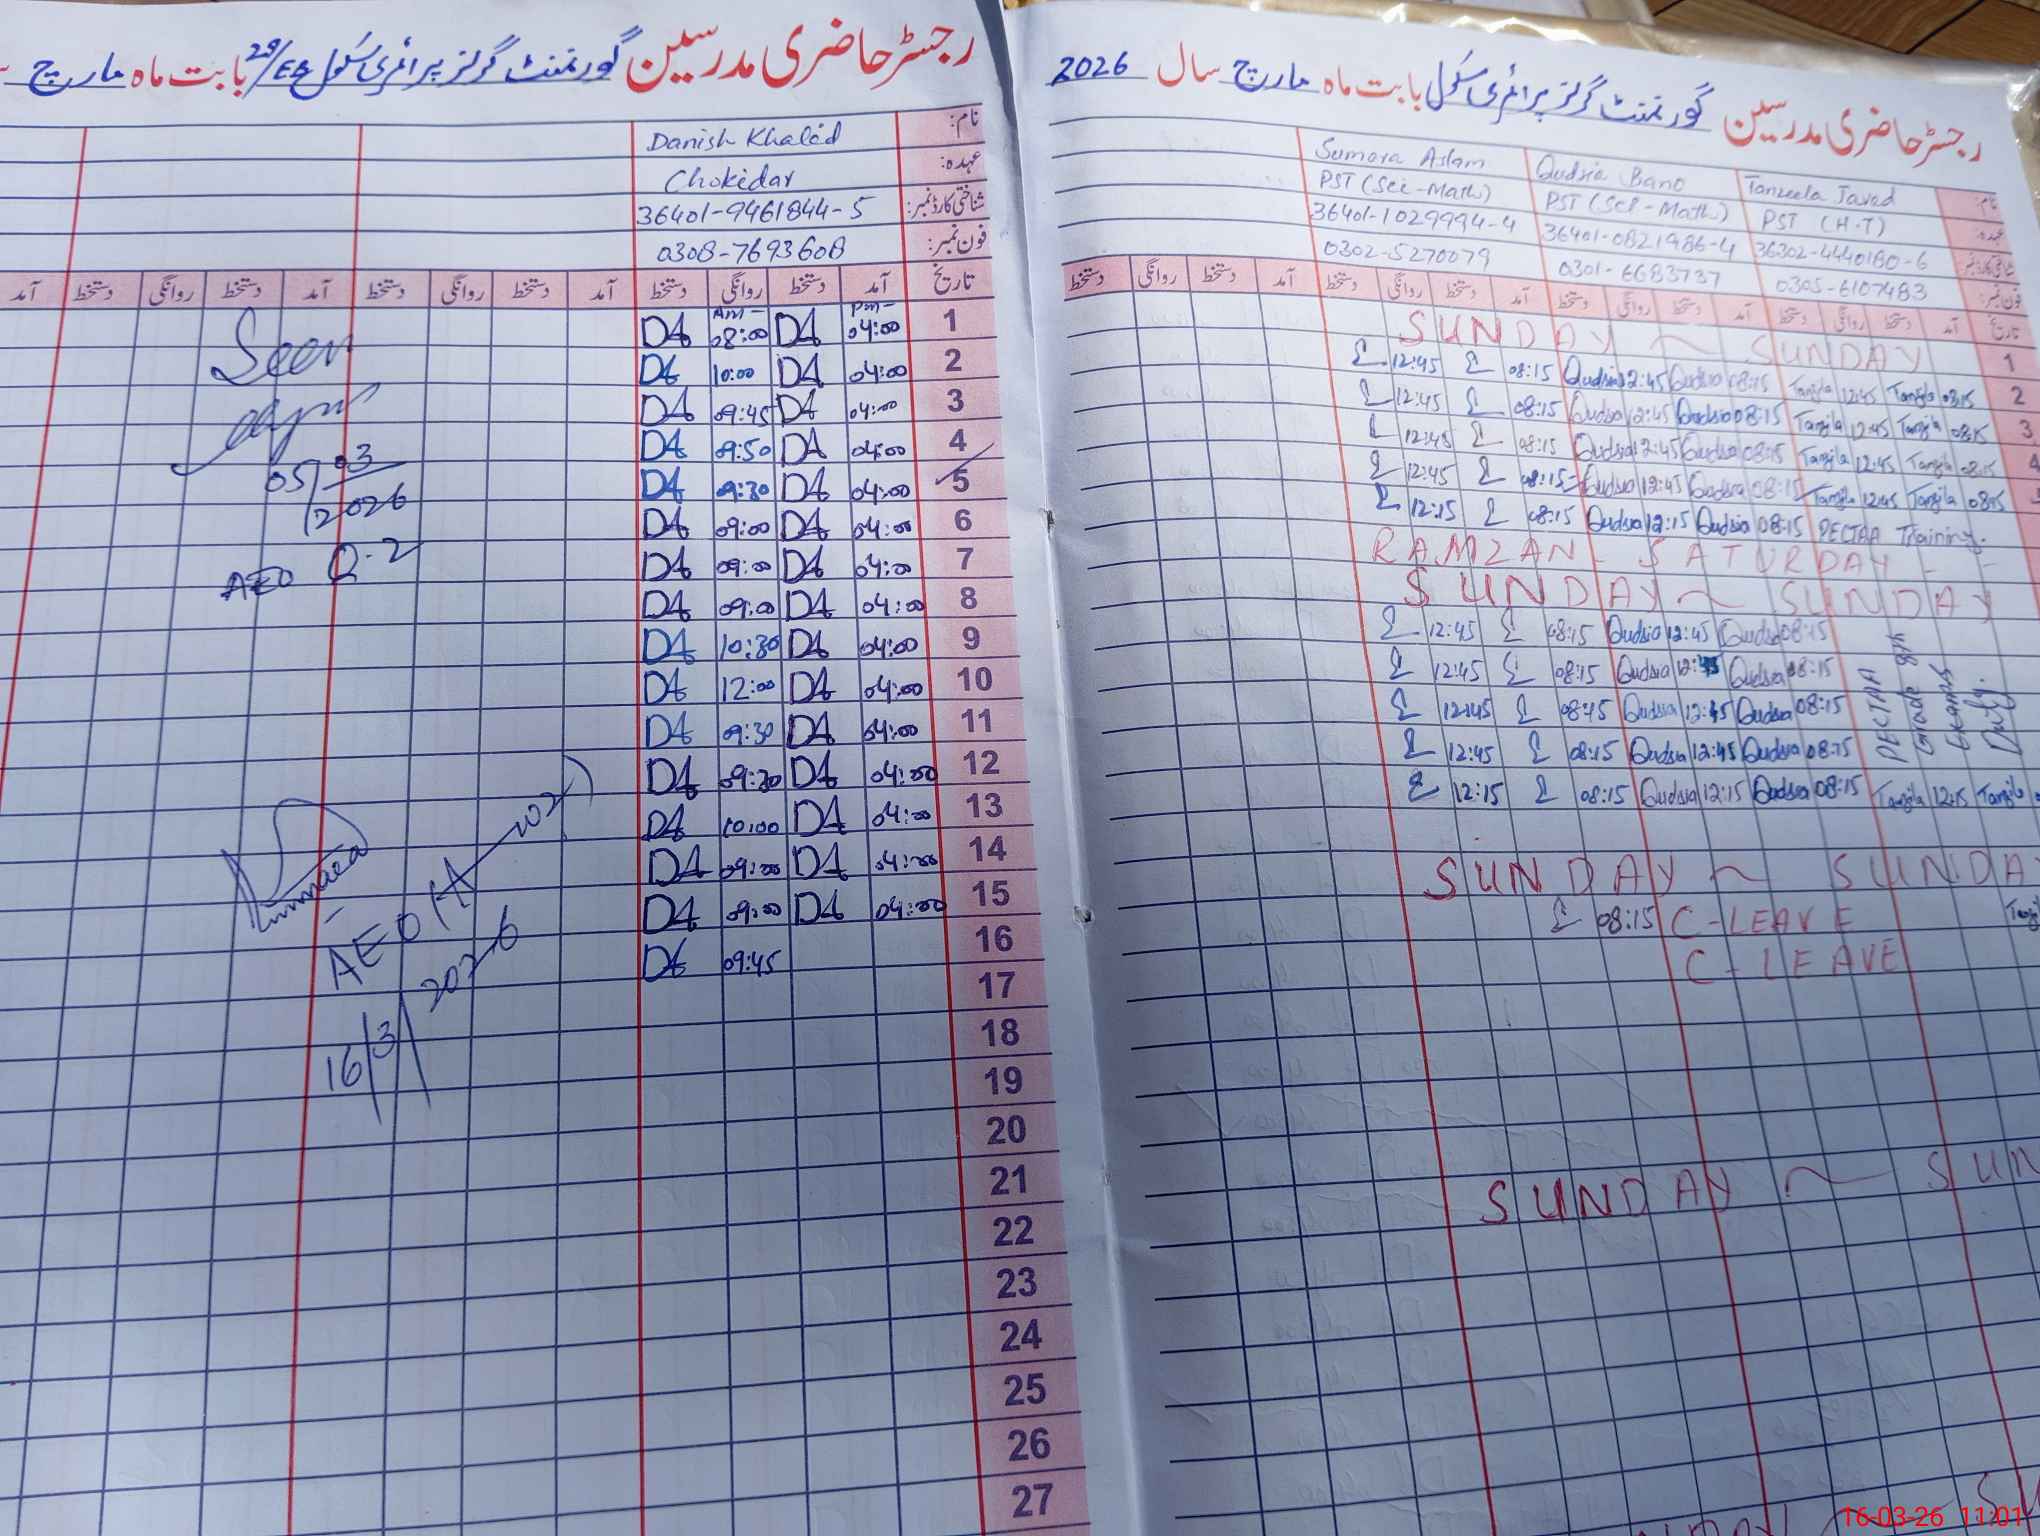 رجسٹر حاضری مدرسین گورنمنٹ گرلز پرائمری سکول 29/EB بابت ماہ مارچ
نام: Danish Khalid
عہدہ: Chokidar
شناختی کارڈ نمبر: 36401-9461844-5
فون نمبر: 0308-7693608
تاریخ آمد دستخط روانگی دستخط آمد دستخط روانگی دستخط آمد دستخط روانگی دستخط آمد
1 Pm 04:00 DA Am 08:00 DA
2 04:00 DA 10:00 DA
3 04:00 DA 09:45 DA
4 04:00 DA 09:50 DA
5 04:00 DA 09:30 DA
6 04:00 DA 09:00 DA
7 04:00 DA 09:00 DA
8 04:00 DA 09:00 DA
9 04:00 DA 10:30 DA
10 04:00 DA 12:00 DA
11 04:00 DA 09:30 DA
12 04:00 DA 09:30 DA
13 04:00 DA 10:00 DA
14 04:00 DA 09:00 DA
15 04:00 DA 09:00 DA
16 09:45 DA
17
18
19
20
21
22
23
24
25
26
27
Seen
05/03/2026
AEO Q-2
AEO
16/3/2026
رجسٹر حاضری مدرسین گورنمنٹ گرلز پرائمری سکول بابت ماہ مارچ سال 2026
نام: Tanzeela Javed Qudsia Bano Sumera Aslam
عہدہ: PST (H.T) PST (Sci-Math) PST (Sci-Math)
36302-4440180-6 36401-0821986-4 36401-1029994-4
فون نمبر: 0305-6107483 0301-6683737 0302-5270079
تاریخ آمد دستخط روانگی دستخط آمد دستخط روانگی دستخط آمد دستخط روانگی دستخط آمد دستخط روانگی دستخط
1 SUNDAY ~ SUNDAY
2 08:15 Tanzila 12:45 Tanzila 08:15 Qudsia 12:45 Qudsia 08:15 12:45
3 08:15 Tanzila 12:45 Tanzila 08:15 Qudsia 12:45 Qudsia 08:15 12:45
4 08:15 Tanzila 12:45 Tanzila 08:15 Qudsia 12:45 Qudsia 08:15 12:45
08:15 Tanzila 12:45 Tanzila 08:15 Qudsia 12:45 Qudsia 08:15 12:45
PECTAA Training. 08:15 Qudsia 12:15 Qudsia 08:15 12:15
RAMZAN - SATURDAY - -
SUNDAY ~ SUNDAY
08:15 Qudsia 12:45 Qudsia 08:15 12:45
08:15 Qudsia 12:45 Qudsia 08:15 12:45
08:15 Qudsia 12:45 Qudsia 08:15 12:45
08:15 Qudsia 12:45 Qudsia 08:15 12:45
PECTAA Grade 8th Exams Duty.
Tanzila 12:15 Tanzila 08:15 Qudsia 12:15 Qudsia 08:15 12:15
SUNDAY ~ SUNDA
C-LEAVE 08:15
C-LEAVE
SUNDAY ~ SUN
16-03-26 11:01